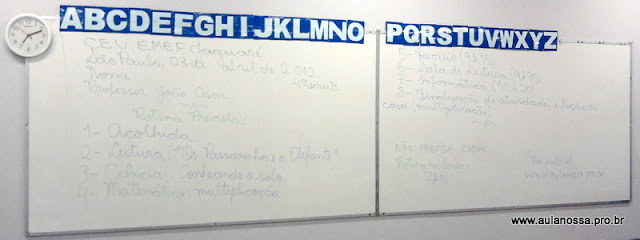 ABCDEFGHIJKLMNO
PQRSTUVWXYZ
CEU EMEF Jaguaré
São Paulo, 03 de abril de 2.012
Nome:
Professor João Cesar
Rotina Prevista:
1- Acolhida
2- Leitura: "Os Passarinhos e o Elefante"
3- Ciência: Conhecendo o solo
4- Matemática: multiplicação
5- Recreio
6- Sala de Leitura
7- Informática
8- Finalização de atividades e lição de
casa (multiplicação)
NÃO PRECISA COPIAR
Rotina na lousa
7h10
www.aulanossa.pro.br
www.aulanossa.pro.br